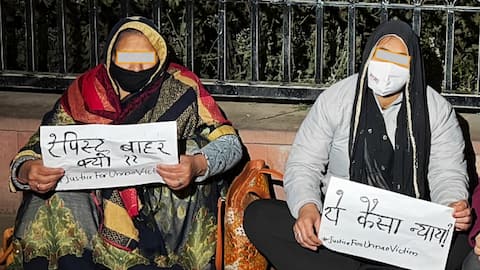 रेपिस्ट बाहर
क्यों ??
#JusticeForUnnaoVictim
ये कैसा न्याय?
#JusticeForUnnaoVictim